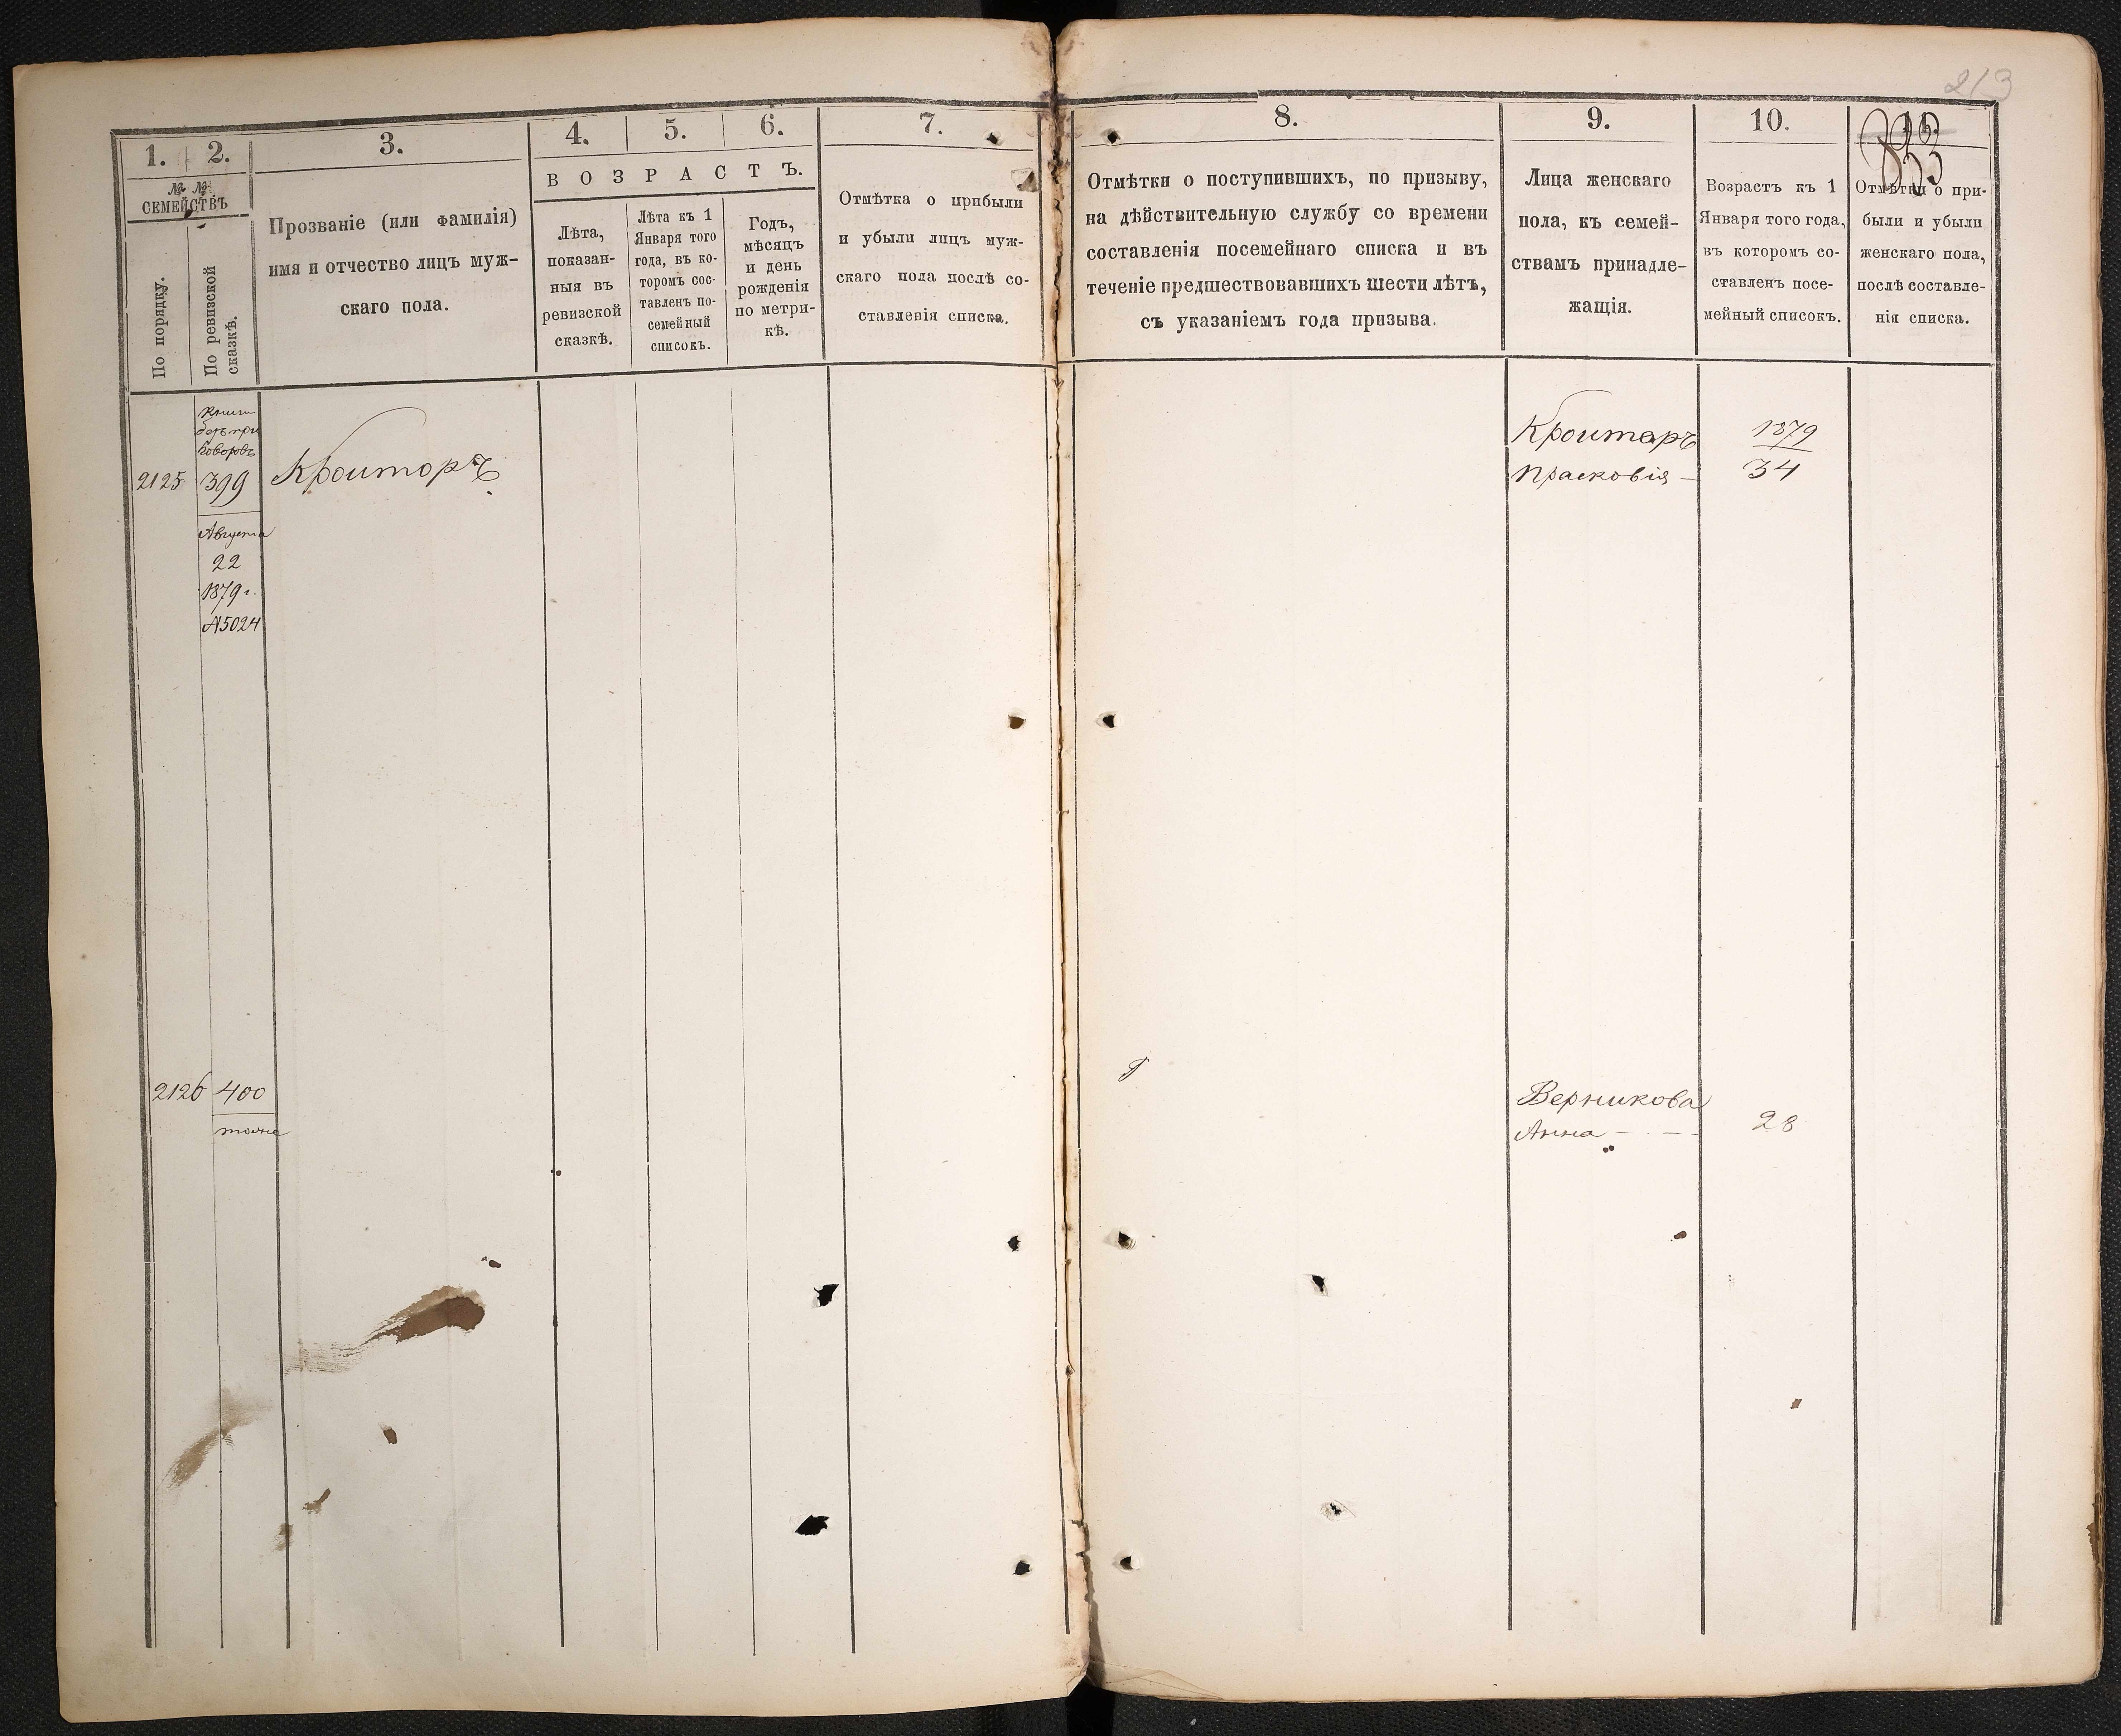 213
1.
2.
3.
4.
5.
6.
7.
№ №
СЕМЕЙСТВЪ
По порядку.
По ревизской
сказкѣ.
Прозваніе (или фамилія)
имя и отчество лицъ муж-
скаго пола.
ВОЗРАСТЪ.
Лѣта,
показан-
ныя въ
ревизской
сказкѣ.
Лѣта къ 1
Января того
года, въ ко-
торомъ сос-
тавленъ по-
семейный
списокъ.
Годъ,
мѣсяцъ
и день
рожденія
по метри-
кѣ.
Отмѣтка о прибыли
и убыли лицъ муж-
скаго пола послѣ со-
ставленія списка.
8.
9.
10.
11.
Отмѣтки о поступившихъ, по призыву,
на дѣйствительную службу со времени
составленія посемейнаго списка и въ
теченіе предшествовавшихъ шести лѣтъ,
съ указаніемъ года призыва.
Лица женскаго
пола, къ семей-
ствамъ принадле-
жащія.
Возрастъ къ 1
Января того года,
въ которомъ со-
ставленъ посе-
мейный списокъ.
Отмѣтки о при-
были и убыли
женскаго пола,
послѣ составле-
нія списка.
книги
2125
399
Кроиторъ
Августа
22
1879 г.
№5024
Кроиторъ
Прасковія —
1879
34
2126
400
тоже
Верникова
Анна — — —
28